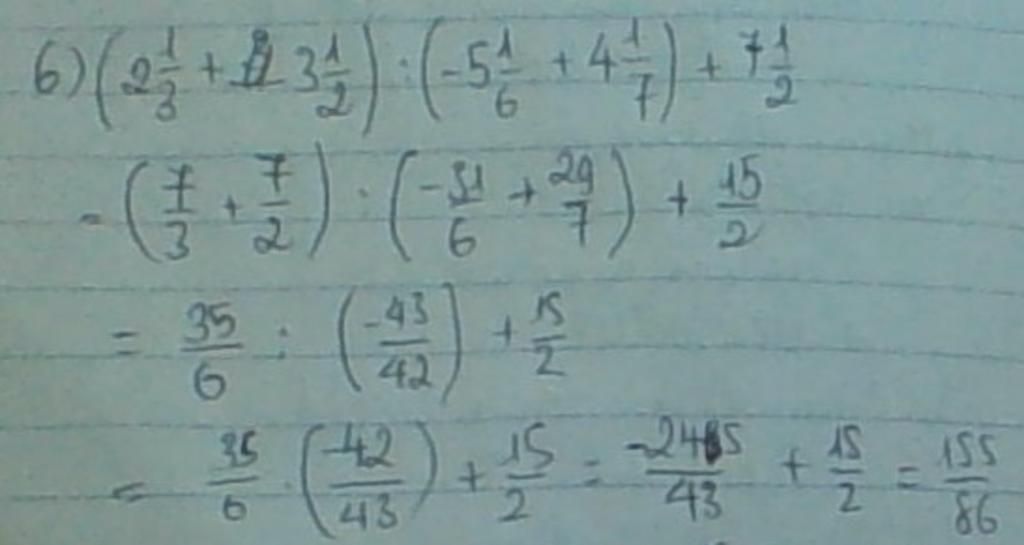 6) (2 1/3 + 3 1/2) : (-5 1/6 + 4 1/7) + 7 1/2
= (7/3 + 7/2) : (-31/6 + 29/7) + 15/2
= 35/6 : (-43/42) + 15/2
= 35/6 . (-42/43) + 15/2 = -245/43 + 15/2 = 155/86